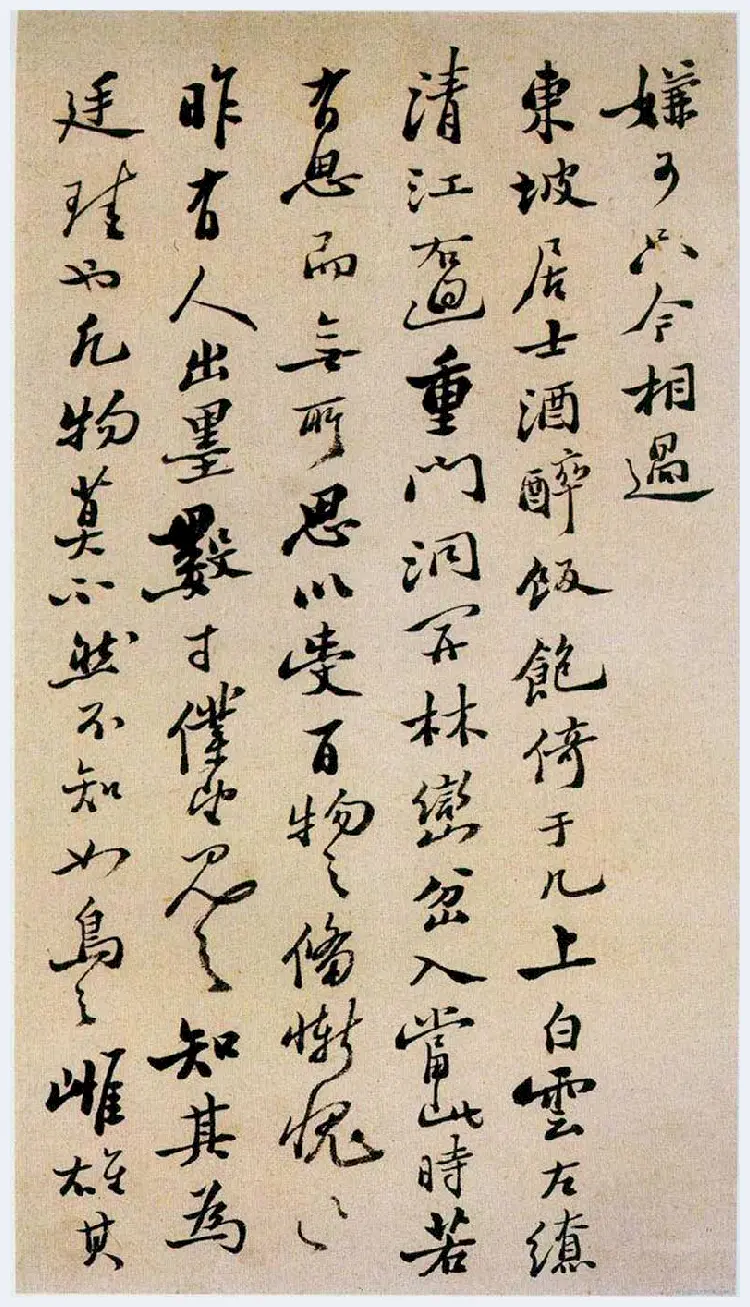 嫌可只今相過
東坡居士酒醉飯飽倚于几上白雲左繚
清江右迴重門洞開林巒岔入當此時若
有思而無所思以受百物之備慚愧〻〻
昨有人出墨數寸僕望見之知其為
廷珪也凡物莫不然不知如烏之雌雄其